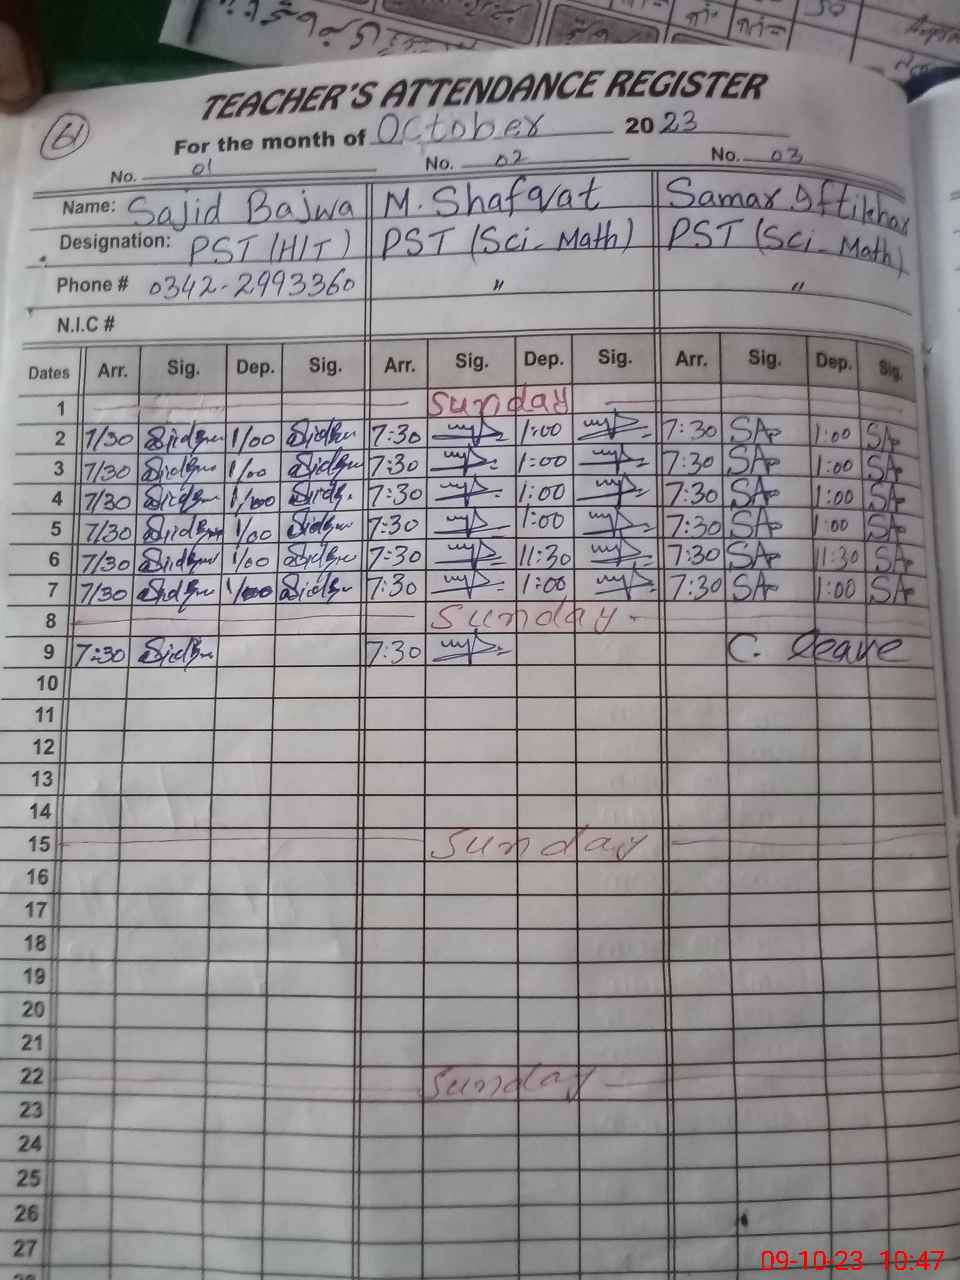 TEACHER'S ATTENDANCE REGISTER
61
For the month of October 2023
No. 01 No. 02 No. 03
Name: Sajid Bajwa M. Shafqat Samar Iftikhar
Designation: PST (H/T) PST (Sci-Math) PST (Sci-Math)
Phone # 0342-2993360 " "
N.I.C #
Dates Arr. Sig. Dep. Sig. Arr. Sig. Dep. Sig. Arr. Sig. Dep. Sig.
1 Sunday
2 7/30 1/00 7:30 1:00 7:30 SAp 1:00 SAp
3 7/30 1/00 7:30 1:00 7:30 SAp 1:00 SAp
4 7/30 1/00 7:30 1:00 7:30 SAp 1:00 SAp
5 7/30 1/00 7:30 1:00 7:30 SAp 1:00 SAp
6 7/30 1/00 7:30 11:30 7:30 SAp 11:30 SAp
7 7/30 1/00 7:30 1:00 7:30 SAp 1:00 SAp
8 Sunday.
9 7:30 7:30 C. leave
10
11
12
13
14
15 Sunday
16
17
18
19
20
21
22 Sunday
23
24
25
26
27
09-10-23 10:47